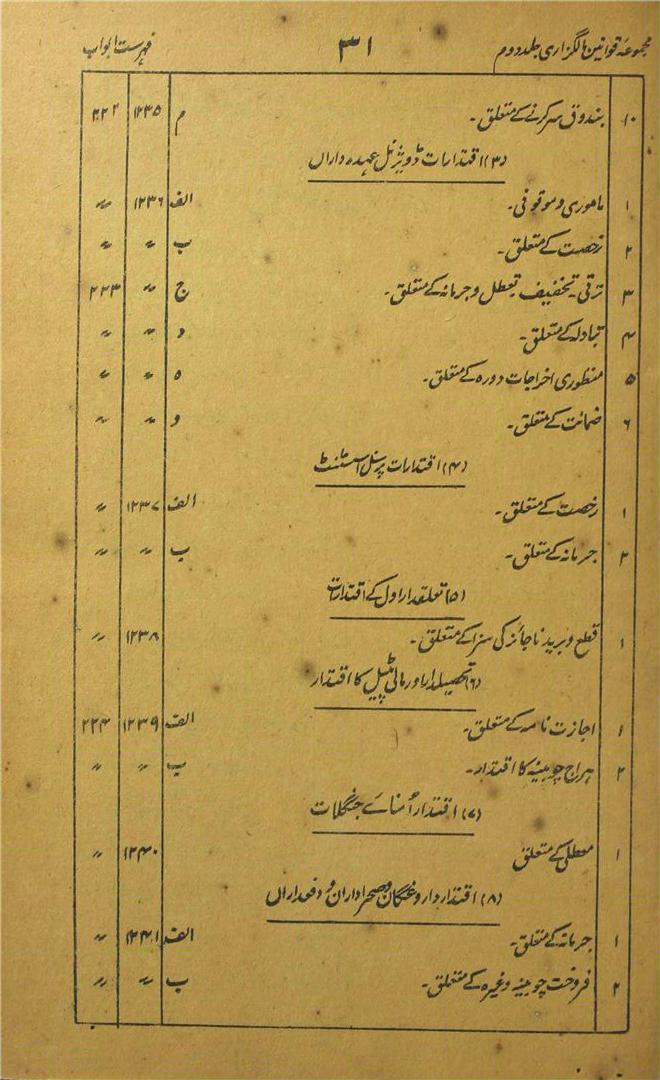 مجموعۂ قوانین مالگزاری جلد دوم ۳۱ فہرست ابواب
۱۰ بندوق سر کرنے کے متعلق۔ م ۱۲۳۵ ۲۲۲
(۳) اقتدارات ڈویژنل عہدہ داراں
۱ ماموری و موقوفی۔ الف ۱۲۳۶ 〃
۲ رخصت کے متعلق۔ ب 〃 〃
۳ ترقی۔ تخفیف۔ تعطل و جرمانہ کے متعلق۔ ج 〃 ۲۲۳
۴ تبادلہ کے متعلق۔ د 〃 〃
۵ منظوری اخراجات دورہ کے متعلق۔ ہ 〃 〃
۶ ضمانت کے متعلق۔ و 〃 〃
(۴) اقتدارات پرسنل اسسٹنٹ
۱ رخصت کے متعلق۔ الف ۱۲۳۷ 〃
۲ جرمانہ کے متعلق۔ ب 〃 〃
(۵) تعلقدار اول کے اقتدارات
۱ قطع و برید ناجائز کی سزا کے متعلق۔ ۱۲۳۸ 〃
(۶) تحصیلدار اور مالی پٹیل کا اقتدار
۱ اجازت نامہ کے متعلق۔ الف ۱۲۳۹ ۲۲۴
۲ ہراج چوبینہ کا اقتدار۔ ب 〃 〃
(۷) اقتدار اُمنائے جنگلات
۱ معطلی کے متعلق ۱۲۴۰ 〃
(۸) اقتدار داروغگان و صحرا داران و دفعداراں
۱ جرمانہ کے متعلق۔ الف ۱۲۴۱ 〃
۲ فروخت چوبینہ وغیرہ کے متعلق۔ ب 〃 〃